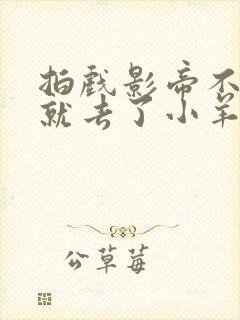 拍戏影帝不
就去了小羊
公草莓